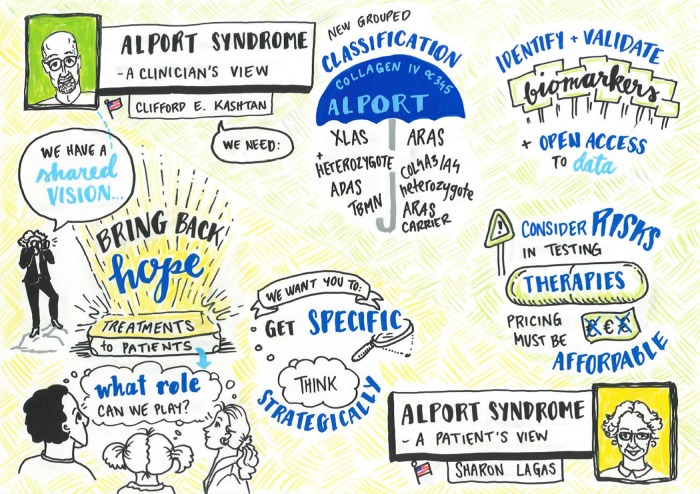 ALPORT SYNDROME
- A CLINICIAN'S VIEW
CLIFFORD E. KASHTAN
WE NEED:
NEW GROUPED
CLASSIFICATION
COLLAGEN IV α345
ALPORT
XLAS
+
HETEROZYGOTE
ADAS
TBMN
ARAS
COL4A3/A4
heterozygote
ARAS
CARRIER
IDENTIFY + VALIDATE
biomarkers
+ OPEN ACCESS
TO data
WE HAVE A
shared
VISION...
BRING BACK
hope
TREATMENTS
to PATIENTS
what role
CAN WE PLAY?
WE WANT YOU TO:
GET SPECIFIC
THINK
STRATEGICALLY
!
CONSIDER RISKS
IN TESTING
THERAPIES
PRICING
MUST BE
€€€
AFFORDABLE
ALPORT SYNDROME
- A PATIENT'S VIEW
SHARON LAGAS